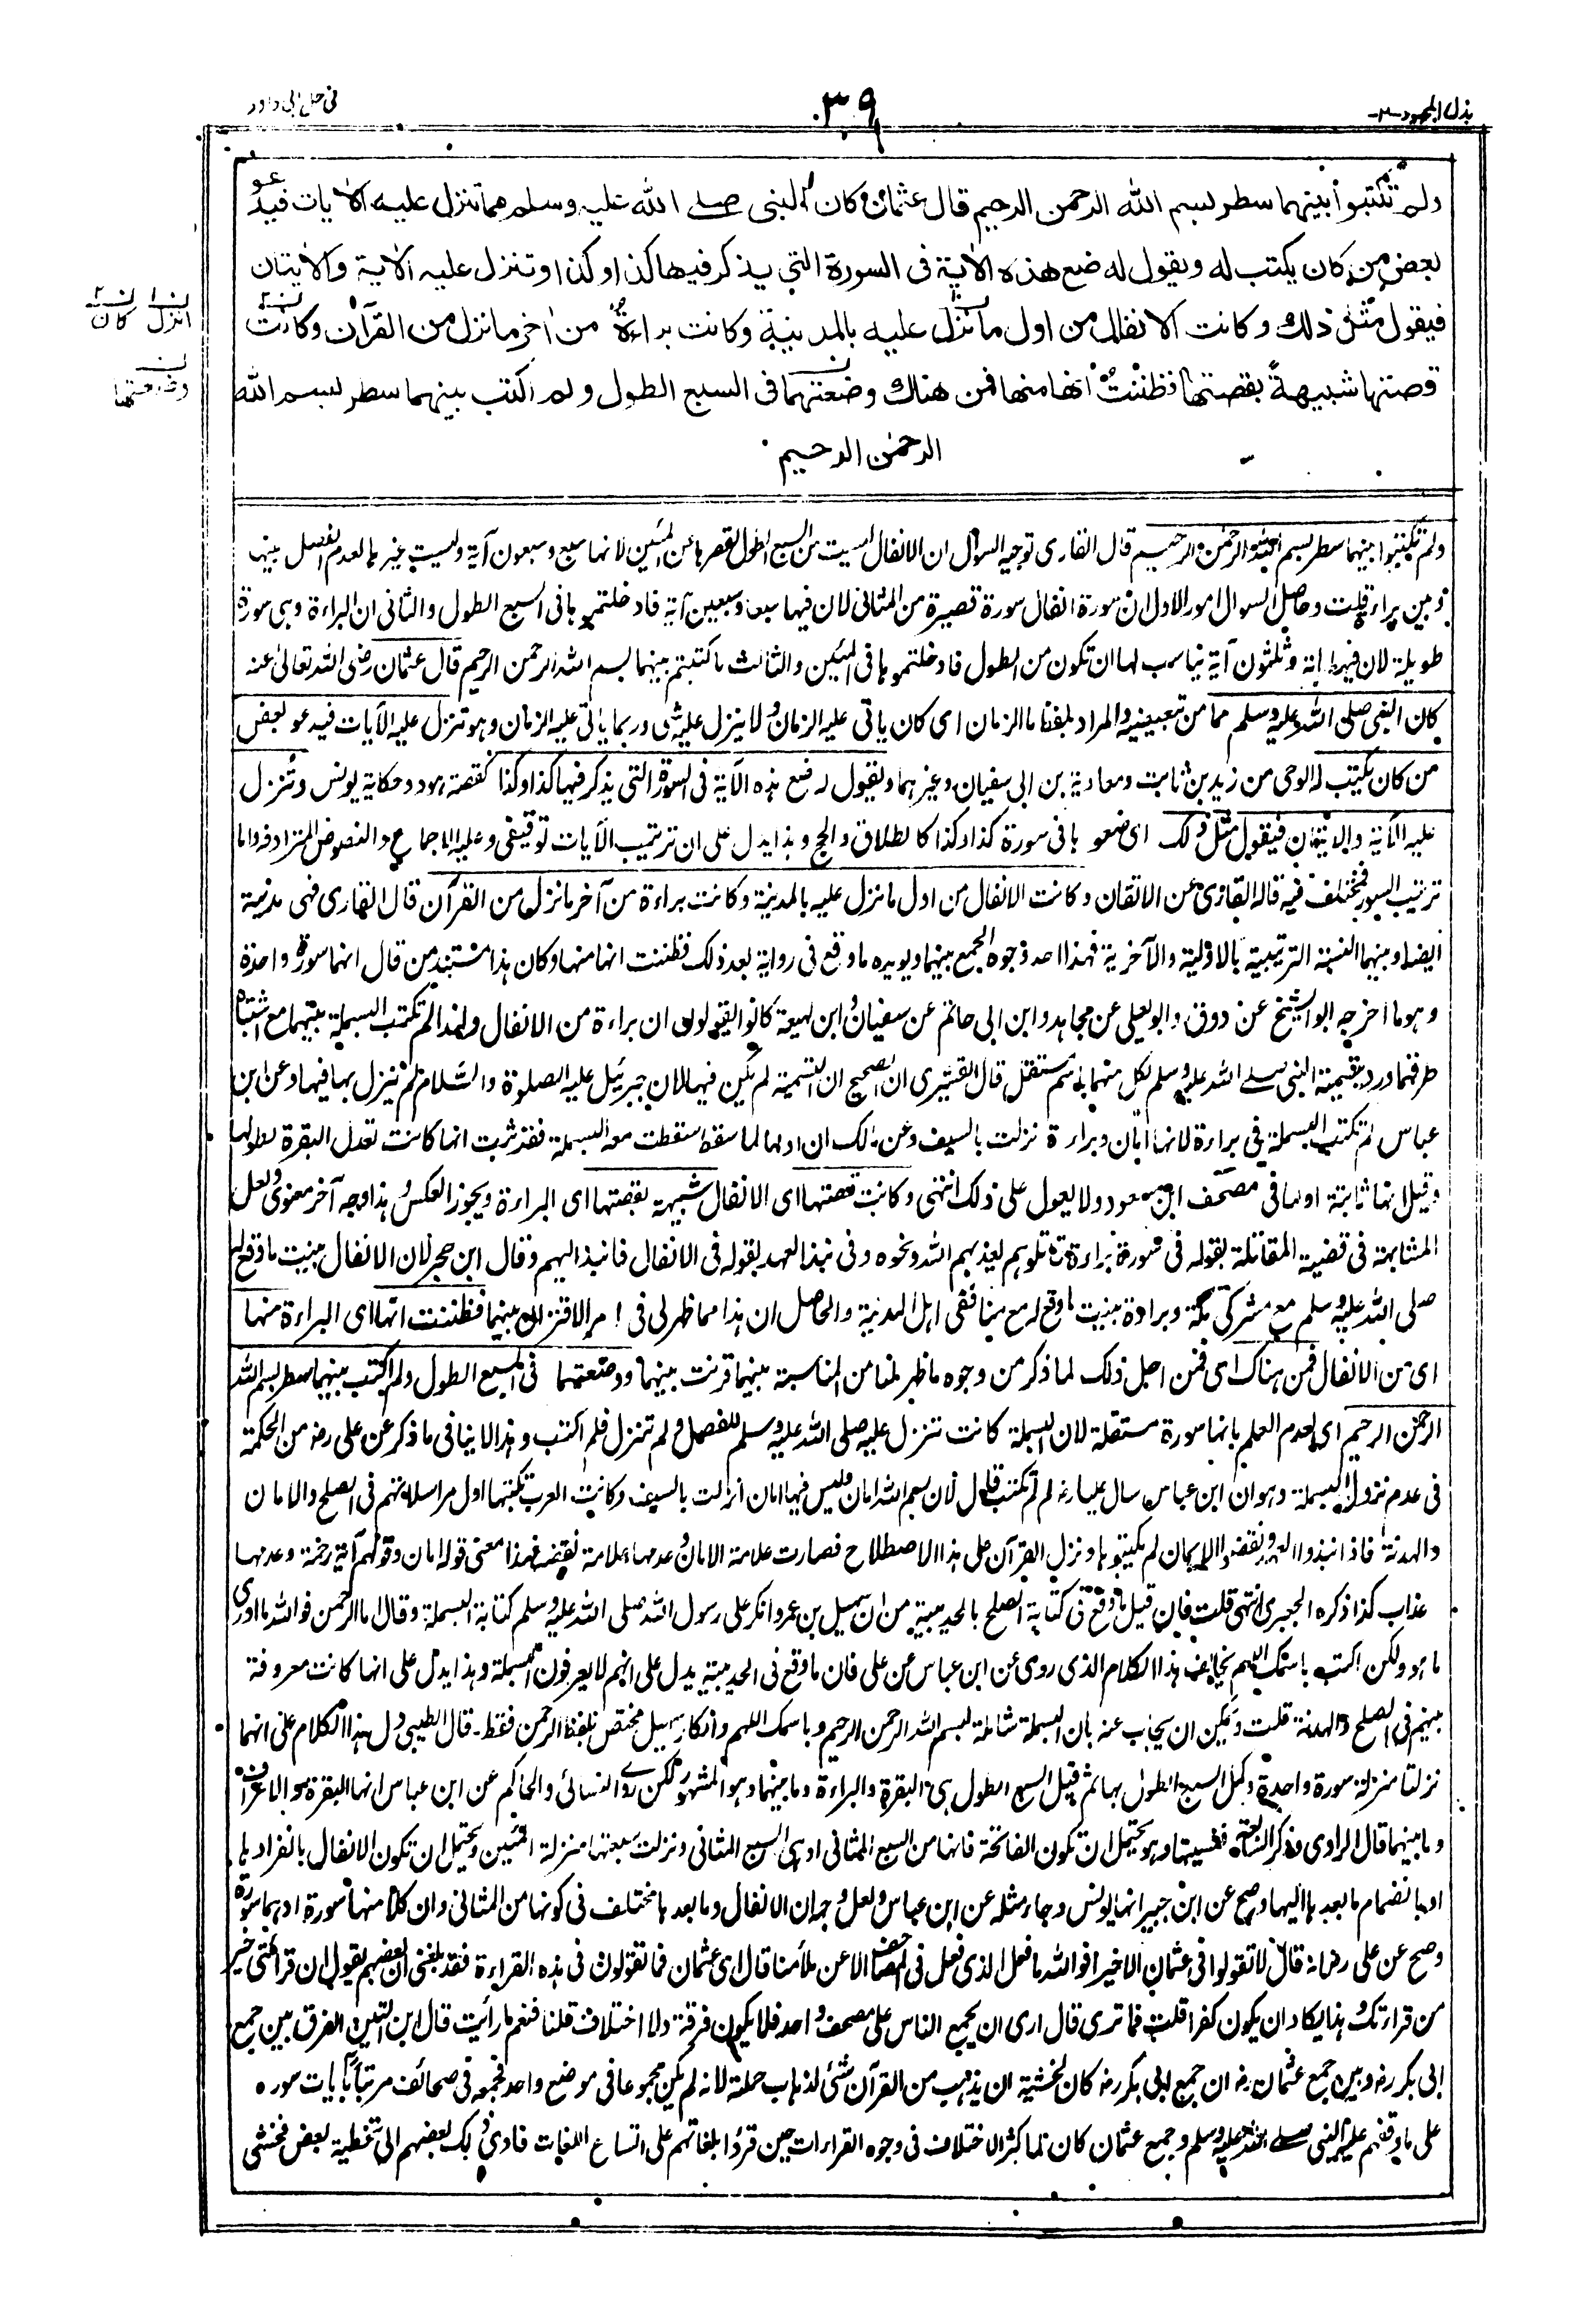 بذل المجهود -٢-
٣٩
في حل ابي داود
ولم تكتبوا بينهما سطر بسم الله الرحمن الرحيم قال عثمان كان النبي صلى الله عليه وسلم مما تنزل عليه الآيات فيدعو
بعض من كان يكتب له ويقول له ضع هذه الآية في السورة التي يذكر فيها كذا وكذا وتنزل عليه الآية والآيتان
فيقول مثل ذلك وكانت الانفال من اول ما نزل عليه بالمدينة وكانت براءة من اخر ما نزل من القرآن وكانت
قصتها شبيهة بقصتها فظننت انها منها فمن هناك وضعتهما في السبع الطول ولم اكتب بينهما سطر بسم الله
الرحمن الرحيم
ن١ انزل ن٢ كان
ن وضعتها
ولم تكتبوا بينهما سطر بسم الله الرحمن الرحيم قال القاري توجيه السوال ان الانفال ليست من السبع الطول لقصرها عن المئين لانها سبع وسبعون آية وليست غيرها لعدم الفصل بينها
وبين براءة قلت وحاصل السوال امور الاول ان سورة انفال سورة قصيرة من المثاني لان فيها سبعا وسبعين آية فادخلتموها في السبع الطول والثاني ان البراءة وهي سورة
طويلة لان فيها مائة وثلثون آية يناسب لها ان تكون من الطول فادخلتموها في المئين والثالث ما كتبتم بينهما بسم الله الرحمن الرحيم قال عثمان رضى الله تعالى عنه
كان النبي صلى الله عليه وسلم مما من تبعيضية والمراد بلفظ ما الزمان اى كان ياتى عليه الزمان ولا ينزل عليه شئ وربما يأتى عليه الزمان وهو تنزل عليه الآيات فيدعو بعض
من كان يكتب له الوحى من زيد بن ثابت ومعاوية بن ابى سفيان وغيرهما ويقول له ضع هذه الآية في السورة التي يذكر فيها كذا وكذا كقصة هود وحكاية يونس وتنزل
عليه الآية والآيتان فيقول مثل ذلك اى ضعوها في سورة كذا وكذا كالطلاق والحج وهذا يدل على ان ترتيب الآيات توقيفى وعليه الاجماع والنصوص المترادفة واما
ترتيب السور فمختلف فيه قاله القاري عن الاتقان وكانت الانفال من اول ما نزل عليه بالمدينة وكانت براءة من آخر ما نزل من القرآن قال القاري فهى مدنية
ايضا وبينهما النسبة الترتيبية بالاولية والآخرية فهذا احد وجوه الجمع بينهما ويويده ما وقع في رواية بعد ذلك فظننت انها منها وكان هذا مستند من قال انهما سورة واحدة
وهو ما اخرجه ابو الشيخ عن دوق وابو يعلى عن مجاهد وابن ابى حاتم عن سفيان وابن لهيعة كانوا يقولون ان براءة من الانفال ولهذا لم تكتب البسملة بينهما مع اشتباه
طرقهما ورد بتسمية النبي صلى الله عليه وسلم لكل منهما باسم مستقل قال القشيرى ان الصحيح ان التسمية لم تكن فيها لان جبرئيل عليه الصلوة والسلام لم ينزل بها فيها وعن ابن
عباس لم تكتب البسملة في براءة لانها امان وبراءة نزلت بالسيف وعن مالك ان اولها لما سقط سقطت معه البسملة فقد ثبت انها كانت تعدل البقرة لطولها
وقيل انها ثابتة اولها في مصحف ابن مسعود ولا يعول على ذلك انتهى وكانت قصتها اى الانفال شبيهة بقصتها اى البراءة ويجوز العكس وهذا وجه آخر معنوى ولعل
المشابهة في قضية المقاتلة بقوله في سورة براءة قاتلوهم يعذبهم الله ونحوه وفى نبذ العهد بقوله في الانفال فانبذ اليهم وقال ابن حجر لان الانفال بينت ما وقع له
صلى الله عليه وسلم مع مشركى مكة وبراءة بينت ما وقع له مع منافقى اهل المدينة والحاصل ان هذا مما ظهر لى في امر الاقتران بينهما فظننت انها اى البراءة منها
اى من الانفال فمن هناك اى فمن اجل ذلك لما ذكر من وجوه ما ظهر لنا من المناسبة بينهما قرنت بينهما ووضعتهما في السبع الطول ولم اكتب بينهما سطر بسم الله
الرحمن الرحيم اى لعدم العلم بانها سورة مستقلة لان البسملة كانت تنزل عليه صلى الله عليه وسلم للفصل ولم تنزل فلم اكتب وهذا لا ينافى ما ذكر عن على رضه من الحكمة
في عدم نزول البسملة وهو ان ابن عباس سال عليا رضه لم لم تكتب قال لان بسم الله امان وليس فيها امان انزلت بالسيف وكانت العرب تكتبها اول مراسلاتهم في الصلح والامان
والهدنة فاذا نبذوا العهد ونقضوا الايمان لم يكتبوها ونزل القرآن على هذا الاصطلاح فصارت علامة الامان وعدمها علامة نقضه فهذا معنى قوله امان وقولهم آية رحمة وعدمها
عذاب كذا ذكره الجعبرى انتهى قلت فان قيل ما وقع في كتابة الصلح بالحديبية من ان سهيل بن عمرو انكر على رسول الله صلى الله عليه وسلم كتابة البسملة وقال ما الرحمن فوالله ما ادرى
ما هو ولكن اكتب باسمك اللهم يخالف هذا الكلام الذى روى عن ابن عباس عن على فان ما وقع في الحديبية يدل على انهم لا يعرفون البسملة وهذا يدل على انها كانت معروفة
بينهم في الصلح والهدنة قلت ويمكن ان يجاب عنه بان البسملة شاملة لبسم الله الرحمن الرحيم وباسمك اللهم وانكار سهيل مختص بلفظ الرحمن فقط۔ قال الطيبى دل هذا الكلام على انهما
نزلتا منزلة سورة واحدة وكمل السبع الطول بها ثم قيل السبع الطول هى البقرة والبراءة وما بينهما وهو المشهور لكن روى النسائى والحاكم عن ابن عباس انها البقرة والاعراف
وما بينهما قال الراوى وذكر السابعة فنسيتها وهو يحتمل ان تكون الفاتحة فانها من السبع المثانى او هى السبع المثانى ونزلت سبعتها منزلة المئين ويحتمل ان تكون الانفال بانفرادها
او بانضمام ما بعدها اليها وصح عن ابن جبير انها يونس وجاء مثله عن ابن عباس ولعل وجهه ان الانفال وما بعدها مختلف في كونها من المثانى وان كلا منهما سورة او هما سورة
وصح عن على رضه انه قال لا تقولوا في عثمان الا خيرا فوالله ما فعل الذى فعل في المصاحف الا عن ملأ منا قال اى عثمان فما تقولون في هذه القراءة فقد بلغنى ان بعضهم يقول ان قرائتى خير
من قراءتك وهذا يكاد ان يكون كفرا قلت فما ترى قال ارى ان يجمع الناس على مصحف واحد فلا يكون فرقة ولا اختلاف قلنا فنعم ما رأيت قال ابن التين الفرق بين جمع
ابى بكر رضه وبين جمع عثمان رضه ان جمع ابى بكر رضه كان لخشية ان يذهب من القرآن شئ لذهاب حملته لانه لم يكن مجموعا في موضع واحد فجمعه في صحائف مرتبا بآيات سوره
على ما وقفهم عليه النبي صلى الله عليه وسلم وجمع عثمان كان لما كثر الاختلاف في وجوه القراءات حين قرؤا بلغاتهم على اتساع اللغات فادى ذلك بعضهم الى تخطية بعض فخشى